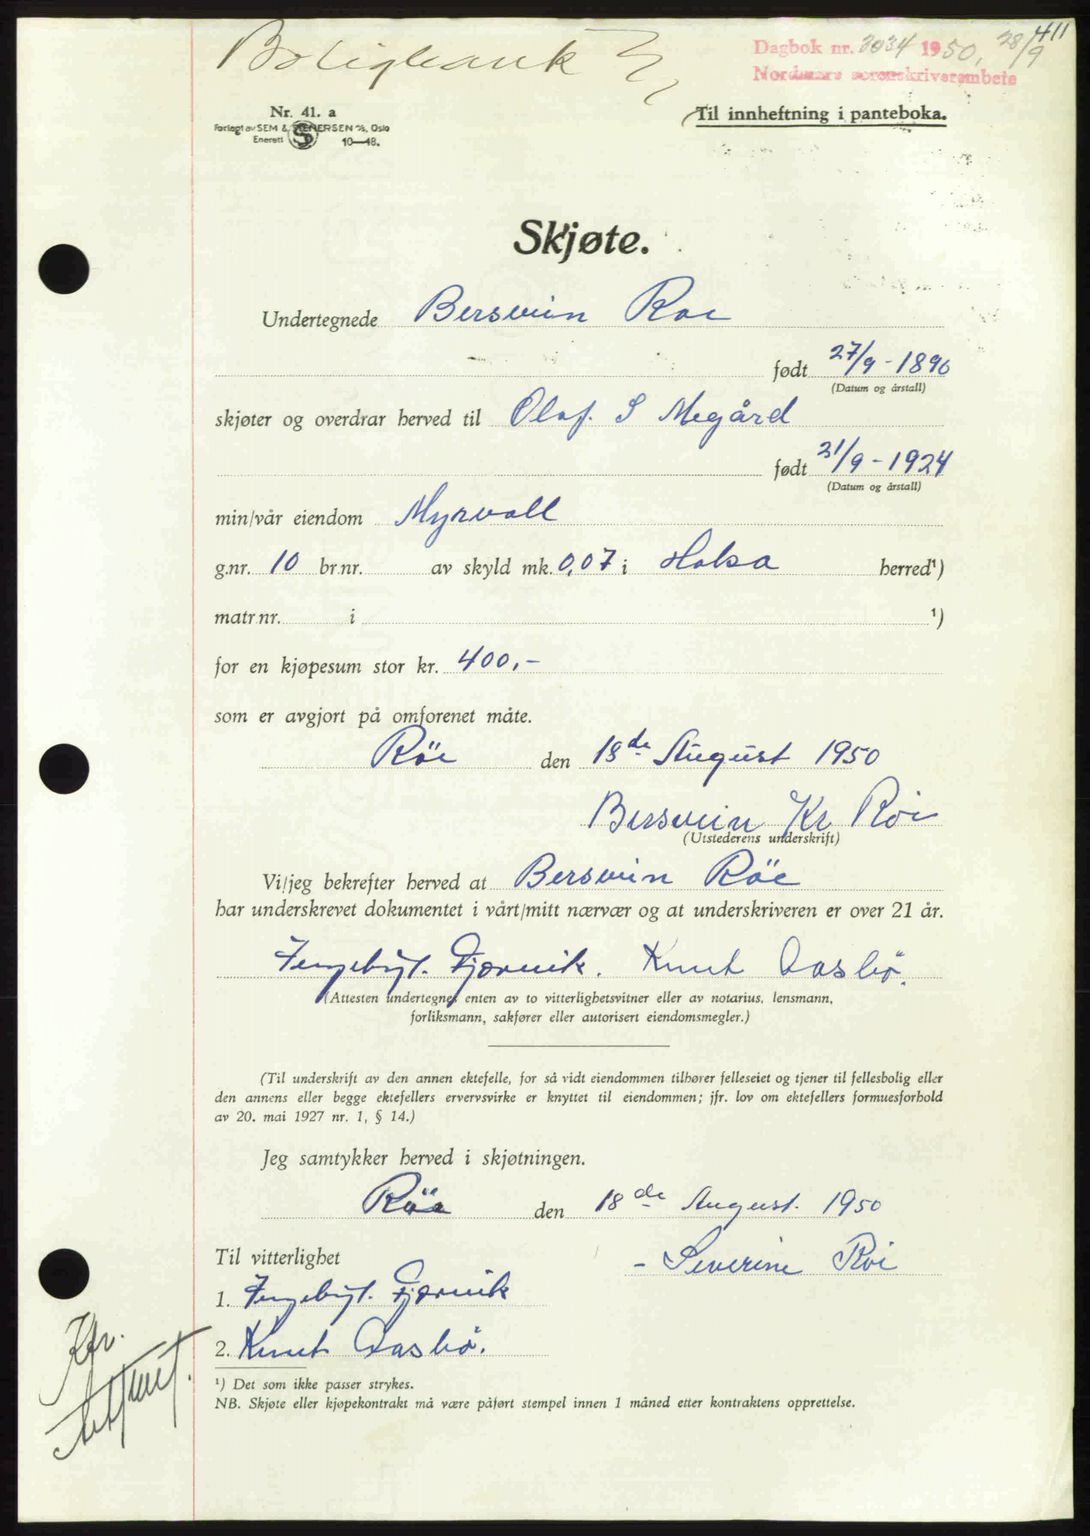 Boligbank
411
Dagbok nr. 2034 1950, 28/9
Nordmøre sorenskriverembete
Nr. 41. a
Forlagt av SEM & STENERSEN A/S, Oslo
Enerett S 10—48.
Til innheftning i panteboka.
Skjøte.
Undertegnede Bersvein Røe
født 27/9 - 1896
(Datum og årstall)
skjøter og overdrar herved til Olaf. S Megård
født 21/9 - 1924
(Datum og årstall)
min/vår eiendom Myrvoll
g.nr. 10 br.nr. av skyld mk. 0,07 i Halsa herred¹)
matr.nr. i ¹)
for en kjøpesum stor kr. 400,-
som er avgjort på omforenet måte.
Röe den 18de August 1950
Bersvein Kr Röe
(Utstederens underskrift)
Vi/jeg bekrefter herved at Bersvein Röe
har underskrevet dokumentet i vårt/mitt nærvær og at underskriveren er over 21 år.
Ingebrigt. Gjørvik. Knut Aasbø.
(Attesten undertegnes enten av to vitterlighetsvitner eller av notarius, lensmann,
forliksmann, sakfører eller autorisert eiendomsmegler.)
(Til underskrift av den annen ektefelle, for så vidt eiendommen tilhører felleseiet og tjener til fellesbolig eller
den annens eller begge ektefellers ervervsvirke er knyttet til eiendommen; jfr. lov om ektefellers formuesforhold
av 20. mai 1927 nr. 1, § 14.)
Jeg samtykker herved i skjøtningen.
Röe den 18de August. 1950
Til vitterlighet
- Severine Röe
1. Ingebrigt. Gjørvik
2. Knut Aasbø.
¹) Det som ikke passer strykes.
NB. Skjøte eller kjøpekontrakt må være påført stempel innen 1 måned etter kontraktens opprettelse.